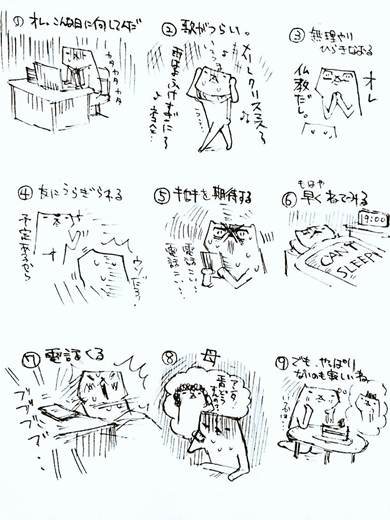 ① オレ、こんな日に何してんだ
カタカタカタ
② 歌がつらい。
オールクリスマス〜
雨は夜ふけすぎに〜
③ 無理やり
ひらきなおる
オレ
仏教だし。
④ 友にうらぎられる
予定あるから
ウソだぁ…
⑤ 奇せきを期待する
電話こい…
電話こい…
⑥ もはや
早くねてみる
19:00
CAN'T
SLEEP!
⑦ 電話くる
ブブブブ…
⑧ 母
⑨ でも、やっぱり
ないのも寂しいね。